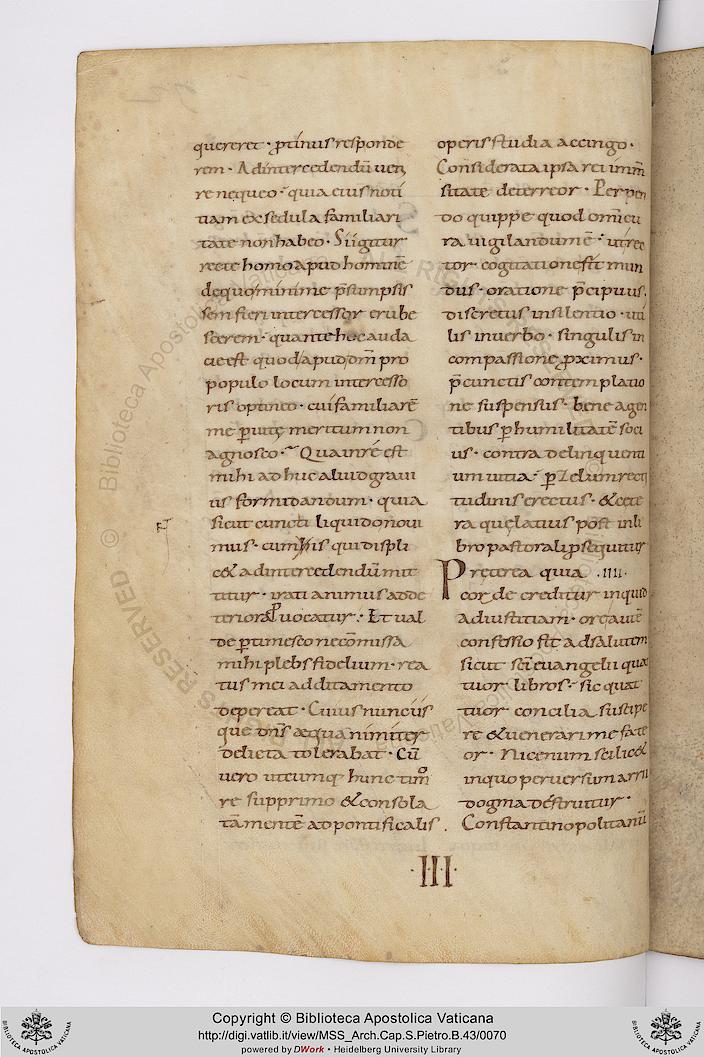 quereret · ꝓtinus responde
rem · Ad intercedendū ueni
re nequeo · quia eius noti
tiam ex sedula familiari
tate non habeo · Si igitur
recte homo apud hominē
de quo minime p̄sumpsis
sem fieri intercessor erube
scerem · quante hoc auda
cie est quod apud dm̄ pro
populo locum intercesso
ris optineo · cui familiarē
me ꝑ uitę meritum non
agnosco · Qua in re est
mihi adhuc aliud graui
us formidandum · quia
sicut cuncti liquido noui
mus · cum is qui displi
c& ad intercedendū mit
titur · irati animus ad de
teriora ꝓuocatur · Et ual
de ꝑtimesco ne cōmissa
mihi plebs fidelium · rea
tus mei additamento
depereat · Cuius nunc us
que dn̄s æquanimiter
delicta tolerabat · Cū
uero utcumq hunc timo
re supprimo & consola
tā mentē ad pontificalis
operis studia accingo ·
Considerata ipsa rei imm̄
sitate deterreor · Perpen
do quippe quod omi cu
ra uigilandum ē · ut rec
tor · cogitatione sit mun
dus · oratione p̄cipuus ·
discretus in silentio · uti
lis in uerbo · singulis in
compassione ꝓximus ·
p̄ cunctis contemplatio
ne suspensus · bene agen
tibus ꝑ humilitatē soci
us · contra delinquenti
um uitia · ꝑ zelum recti
tudinis erectus · & cete
ra que latius post in li
bro pastorali ꝓsequitur
Pręterea quia · IIII ·
corde creditur in quid
ad iustitiam · ore autē
confessio fit ad salutem
sicut sc̄i euangelii qua
tuor libros · sic quat
tuor concilia suscipe
re & uenerari me fate
or · Nicenum scilic&
in quo peruersum arrii
dogma destruitur ·
Constantinopolitanū
· III ·
Copyright © Biblioteca Apostolica Vaticana
http://digi.vatlib.it/view/MSS_Arch.Cap.S.Pietro.B.43/0070
powered by DWork • Heidelberg University Library